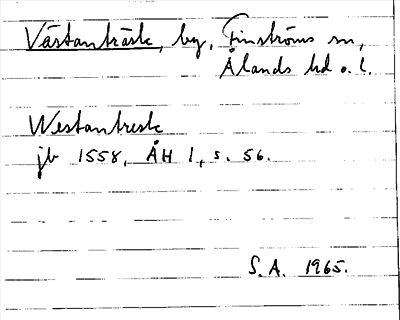 Västanträsk, by, Finströms sn,
Ålands hd o. l.
Westantresk
jb 1558, ÅH 1, s. 56.
S.A. 1965.